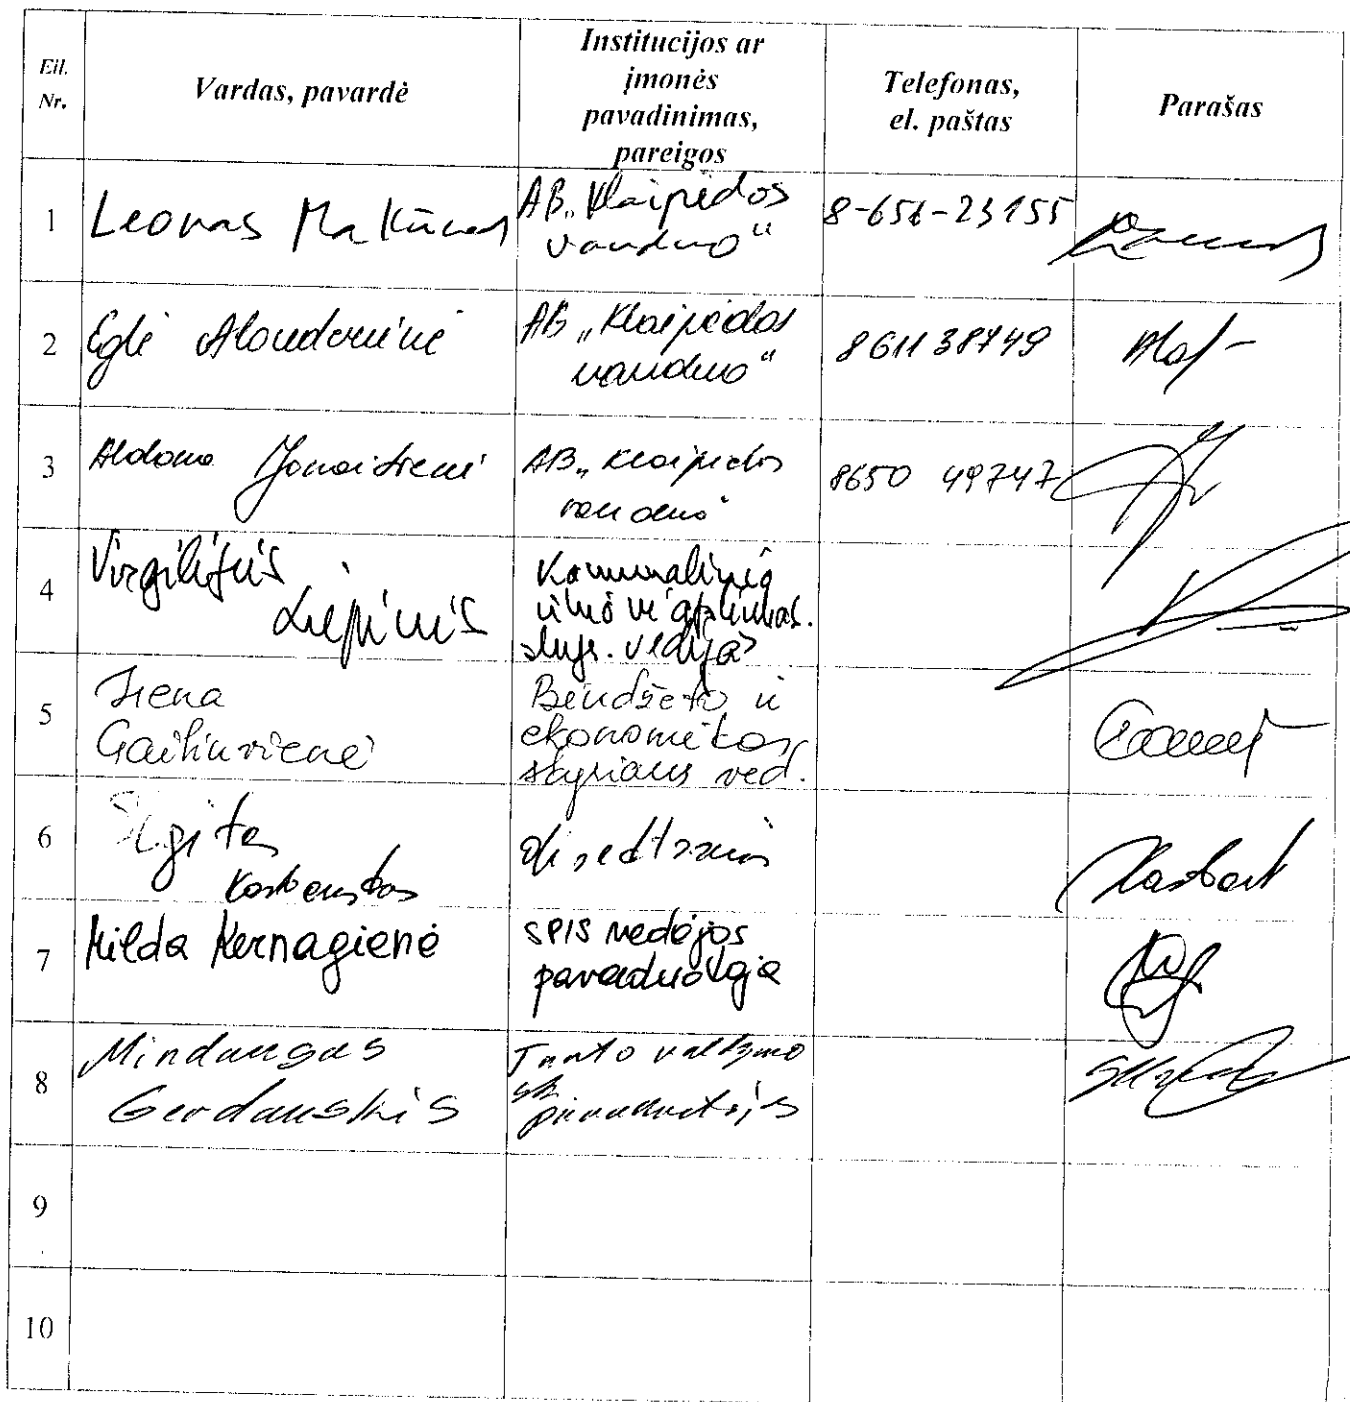 Eil. Nr. Vardas, pavardė Institucijos ar įmonės pavadinimas, pareigos Telefonas, el. paštas Parašas
1 Leonas Makūnas AB „Klaipėdos vanduo“ 8-656-23155
2 Eglė AB „Klaipėdos vanduo“ 861138749
3 Aldona Jonaitienė AB „Klaipėdos vanduo“ 8650 49747
4 Virgilijus Liepinis Komunalinio ūkio ir aplinkos. vedėjas
5 Irena Gailiuvienė Biudžeto ir ekonomikos skyriaus ved.
6 direktorius
7 Milda Kernagienė SPIS vedėjos pavaduotoja
8 Mindaugas Gerdauskis Turto valdymo sk. pavaduotojas
9
10